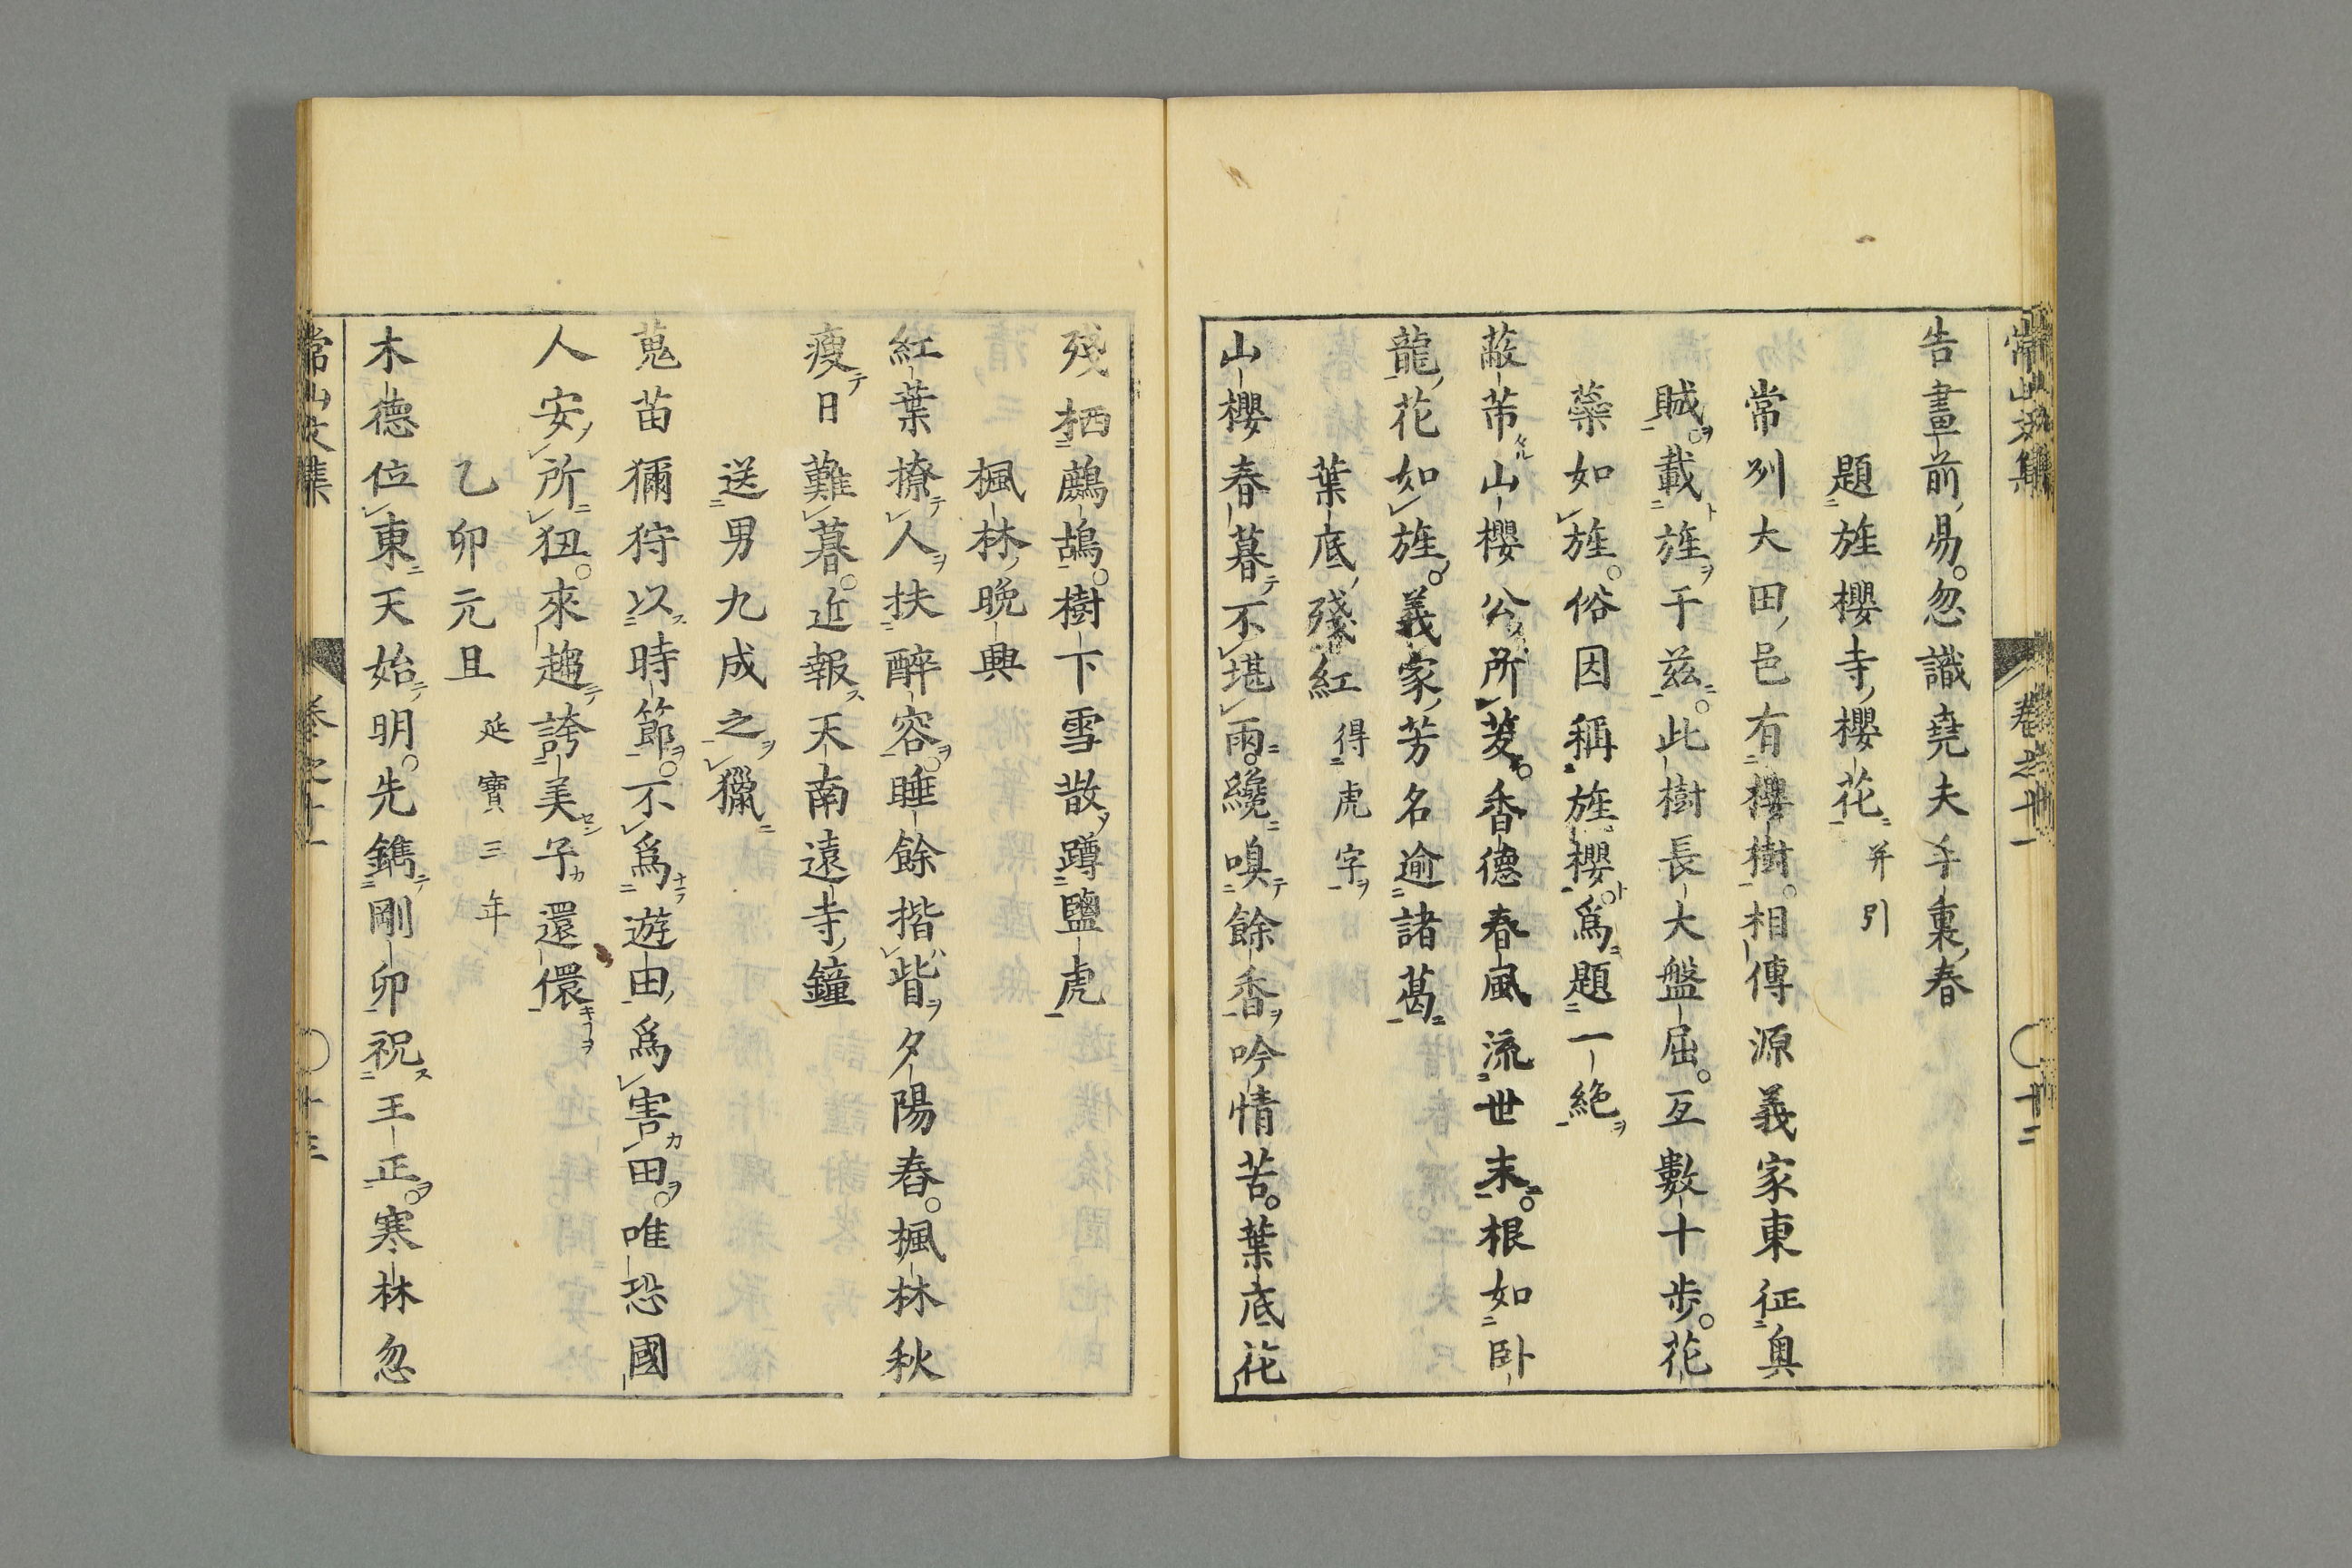 常山文集
卷之十一
十二
告畫前易忽識堯夫手裏春
題旌櫻寺櫻花
并引
常列大田邑有櫻樹相傳源義家東征奥
賊載旌于茲此樹長大盤屈亙數十歩花
蘂如旌俗因稱旌櫻爲題一絶
蔽芾山櫻公所茇香德春風流世末根如卧
龍花如旌義家芳名逾諸葛
葉底殘紅
得虎字
山櫻春暮不堪雨纔嗅餘香吟情苦葉底花
殘栖鷓鴣樹下雪散蹲鹽虎
楓林晩興
紅葉撩人扶醉容睡餘揩眥夕陽舂楓林秋
瘦日難暮近報天南遠寺鐘
送男九成之獵
蒐苗獮狩以時節不爲遊由爲害田唯恐國
人安所狃來趨誇美子還儇
乙卯元旦
延寶三年
木德位東天始明先鐫剛卯祝王正寒林忽
常山文集
卷之十一
十三